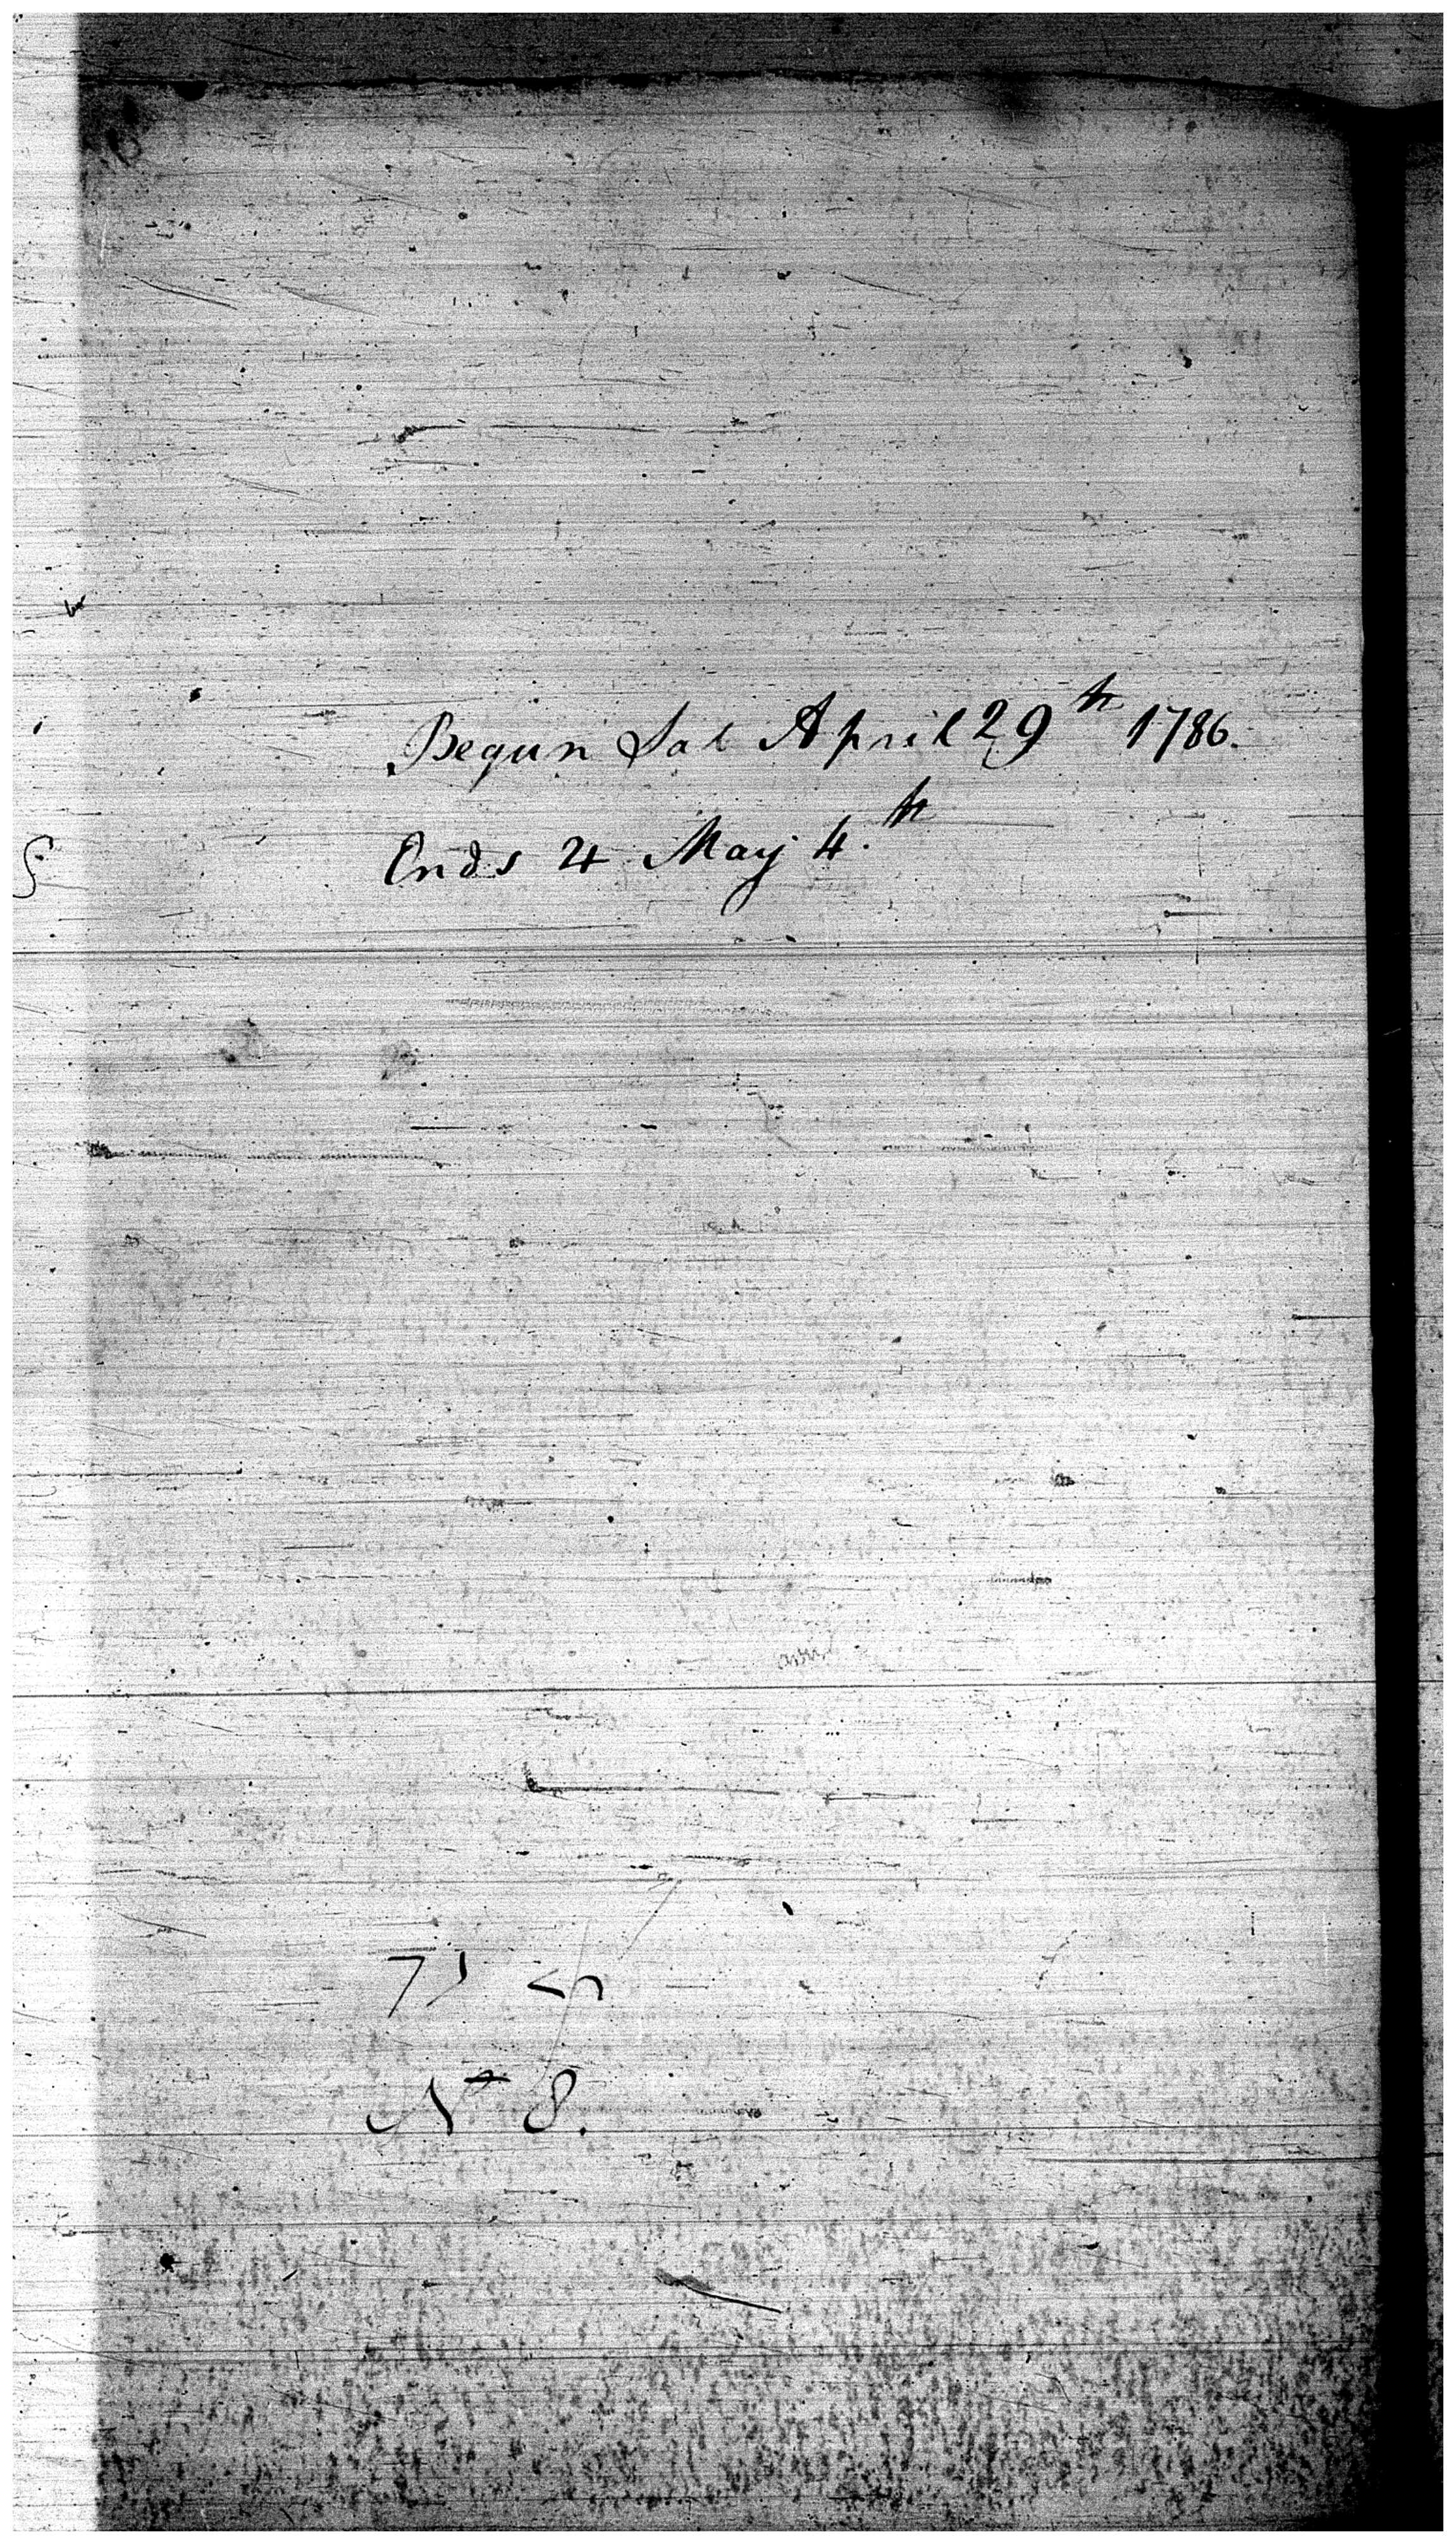 Begun Sat April 29th 1786.
Ends ♃ May 4.th
No 8.